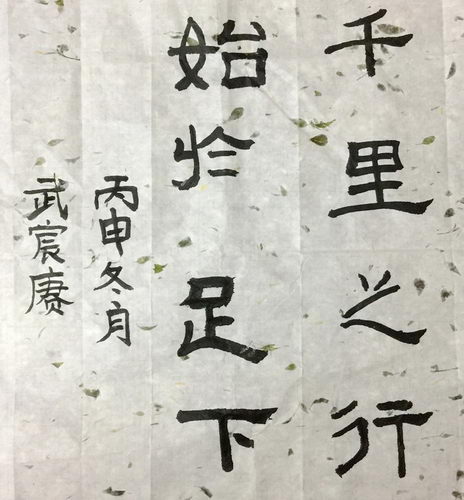 千里之行
始於足下
丙申冬月
武宸赓